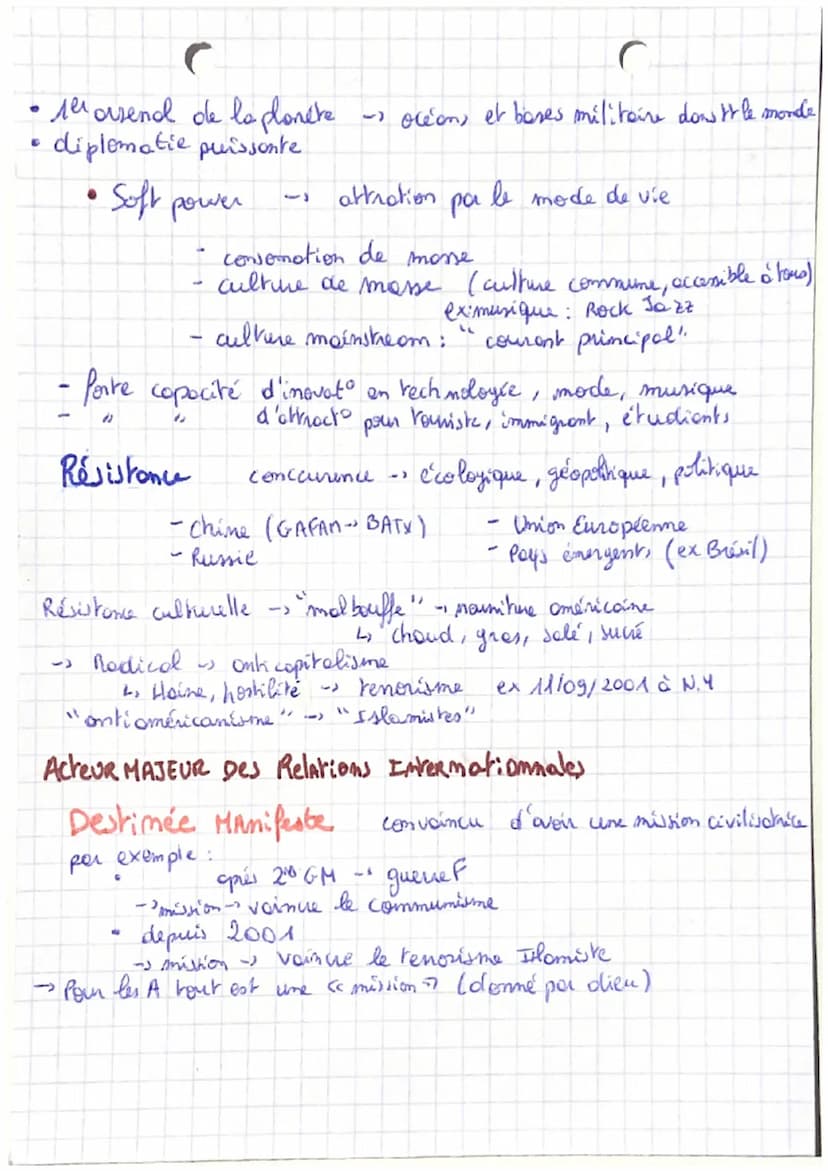 • 1er arsenal de la planète -> océans et bases militaire dans tt le monde
• diplomatie puissante
• Soft power -> attraction par le mode de vie
- consomation de masse
- culture de masse (culture commune, accessible à tous)
ex: musique : Rock Jazz
- culture mainstream : "courant principal".
- forte capacité d'inovat° en technologie, mode, musique
- " " d'attract° pour touriste, immigrant, étudiants
Résistance concurrence -> écologique, géopolitique, politique
- Chine (GAFAM -> BATX) - Union Européenne
- Russie - Pays émergents (ex Brésil)
Résistance culturelle -> "malbouffe" -> nourriture américaine
↳ chaud, gras, salé, sucré
-> Radical -> anticapitalisme
↳ Haine, hostilité -> terrorisme ex 11/09/2001 à N.Y
"antiaméricanisme" -> "Islamistes"
Acteur MAJEUR Des Relations Internationnales
Destinée MAnifeste convaincu d'avoir une mission civilisatrice
par exemple :
• après 2nd GM -> guerre F
-> mission -> vaincre le communisme
• depuis 2001
-> mission -> vaincre le terrorisme Islamiste
-> Pour les A tout est une << mission >> (donné par dieu)